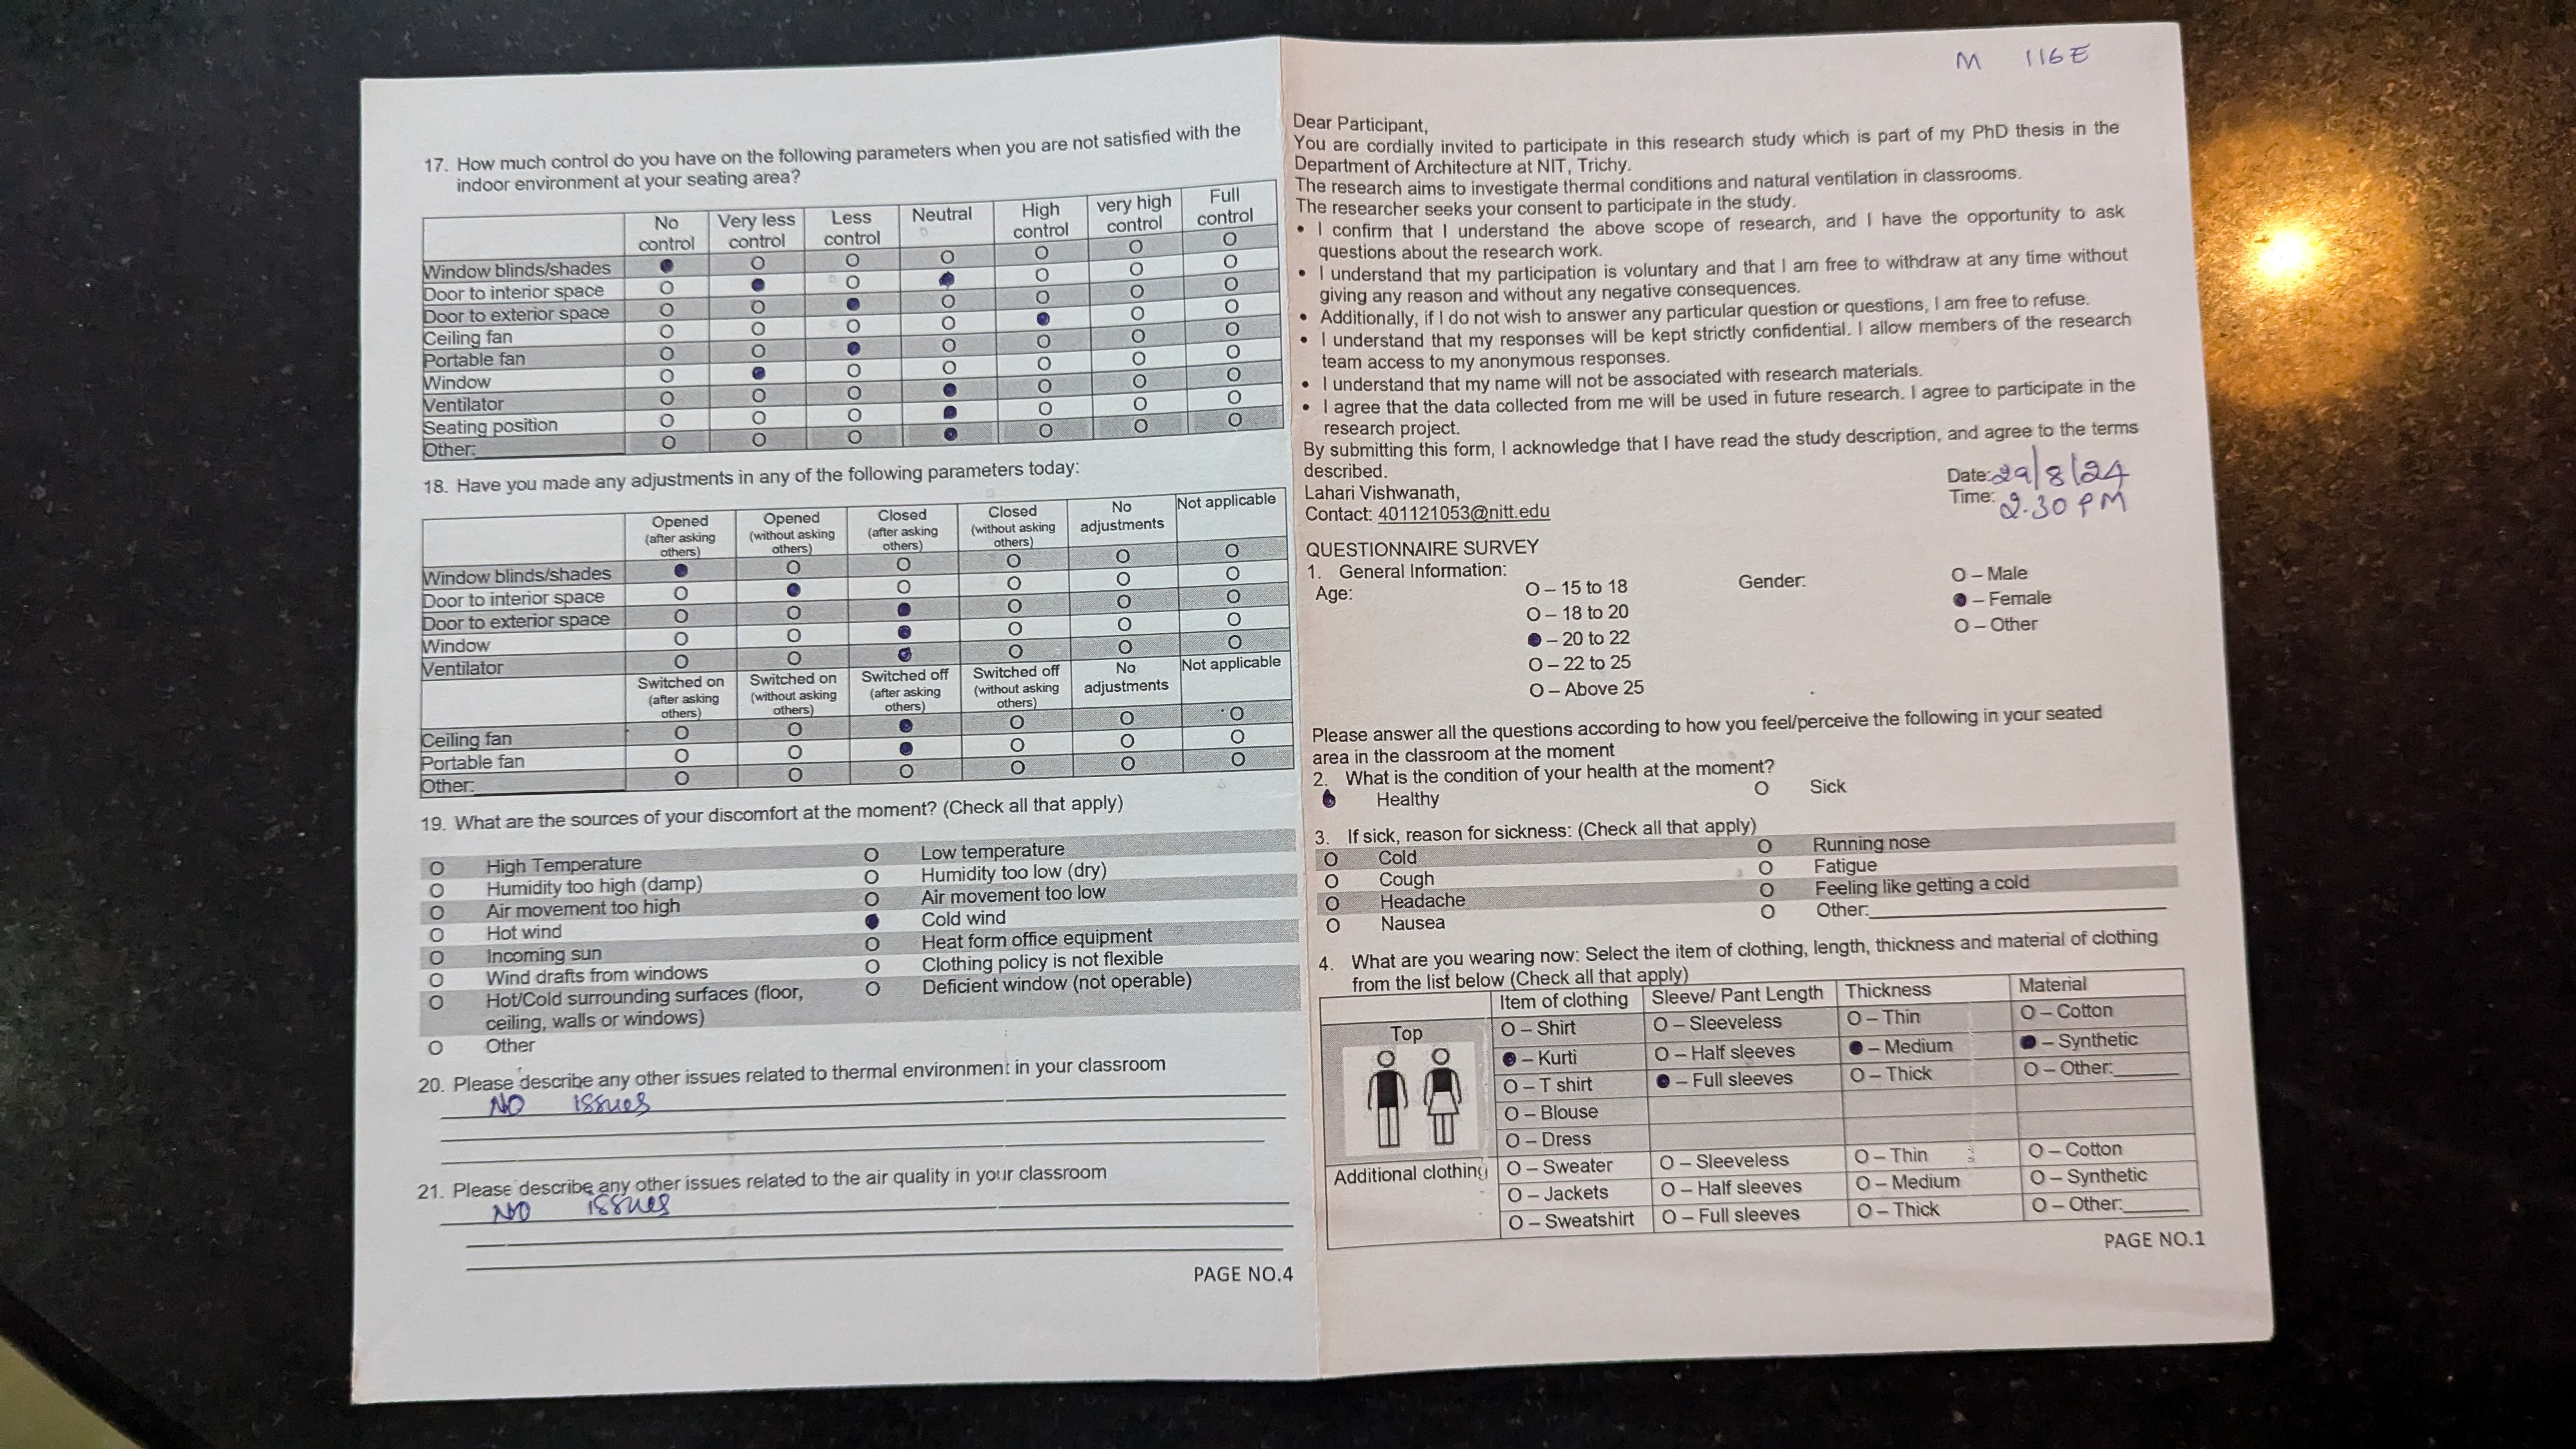 17. How much control do you have on the following parameters when you are not satisfied with the
indoor environment at your seating area?
No control Very less control Less control Neutral High control very high control Full control
Window blinds/shades ● O O O O O O
Door to interior space O ● O ● O O O
Door to exterior space O O ● O O O O
Ceiling fan O O O O ● O O
Portable fan O O ● O O O O
Window O ● O O O O O
Ventilator O O O ● O O O
Seating position O O O ● O O O
Other: O O O ● O O O
18. Have you made any adjustments in any of the following parameters today:
Opened (after asking others) Opened (without asking others) Closed (after asking others) Closed (without asking others) No adjustments Not applicable
Window blinds/shades ● O O O O O
Door to interior space O ● O O O O
Door to exterior space O O ● O O O
Window O O ● O O O
Ventilator O O ● O O O
Switched on (after asking others) Switched on (without asking others) Switched off (after asking others) Switched off (without asking others) No adjustments Not applicable
Ceiling fan O O ● O O O
Portable fan O O ● O O O
Other: O O O O O O
19. What are the sources of your discomfort at the moment? (Check all that apply)
O High Temperature O Low temperature
O Humidity too high (damp) O Humidity too low (dry)
O Air movement too high O Air movement too low
O Hot wind ● Cold wind
O Incoming sun O Heat form office equipment
O Wind drafts from windows O Clothing policy is not flexible
O Hot/Cold surrounding surfaces (floor, O Deficient window (not operable)
ceiling, walls or windows)
O Other
20. Please describe any other issues related to thermal environment in your classroom
NO issues
21. Please describe any other issues related to the air quality in your classroom
NO issues
PAGE NO.4
M 116E
Dear Participant,
You are cordially invited to participate in this research study which is part of my PhD thesis in the
Department of Architecture at NIT, Trichy.
The research aims to investigate thermal conditions and natural ventilation in classrooms.
The researcher seeks your consent to participate in the study.
• I confirm that I understand the above scope of research, and I have the opportunity to ask
questions about the research work.
• I understand that my participation is voluntary and that I am free to withdraw at any time without
giving any reason and without any negative consequences.
• Additionally, if I do not wish to answer any particular question or questions, I am free to refuse.
• I understand that my responses will be kept strictly confidential. I allow members of the research
team access to my anonymous responses.
• I understand that my name will not be associated with research materials.
• I agree that the data collected from me will be used in future research. I agree to participate in the
research project.
By submitting this form, I acknowledge that I have read the study description, and agree to the terms
described.
Lahari Vishwanath,
Contact: 401121053@nitt.edu
Date: 29/8/24
Time: 2.30 PM
QUESTIONNAIRE SURVEY
1. General Information:
Age: O – 15 to 18 Gender: O – Male
O – 18 to 20 ● – Female
● – 20 to 22 O – Other
O – 22 to 25
O – Above 25
Please answer all the questions according to how you feel/perceive the following in your seated
area in the classroom at the moment
2. What is the condition of your health at the moment?
● Healthy O Sick
3. If sick, reason for sickness: (Check all that apply)
O Cold O Running nose
O Cough O Fatigue
O Headache O Feeling like getting a cold
O Nausea O Other:
4. What are you wearing now: Select the item of clothing, length, thickness and material of clothing
from the list below (Check all that apply)
Item of clothing Sleeve/ Pant Length Thickness Material
Top O – Shirt O – Sleeveless O – Thin O – Cotton
● – Kurti O – Half sleeves ● – Medium ● – Synthetic
O – T shirt ● – Full sleeves O – Thick O – Other:
O – Blouse
O – Dress
Additional clothing O – Sweater O – Sleeveless O – Thin O – Cotton
O – Jackets O – Half sleeves O – Medium O – Synthetic
O – Sweatshirt O – Full sleeves O – Thick O – Other:
PAGE NO.1